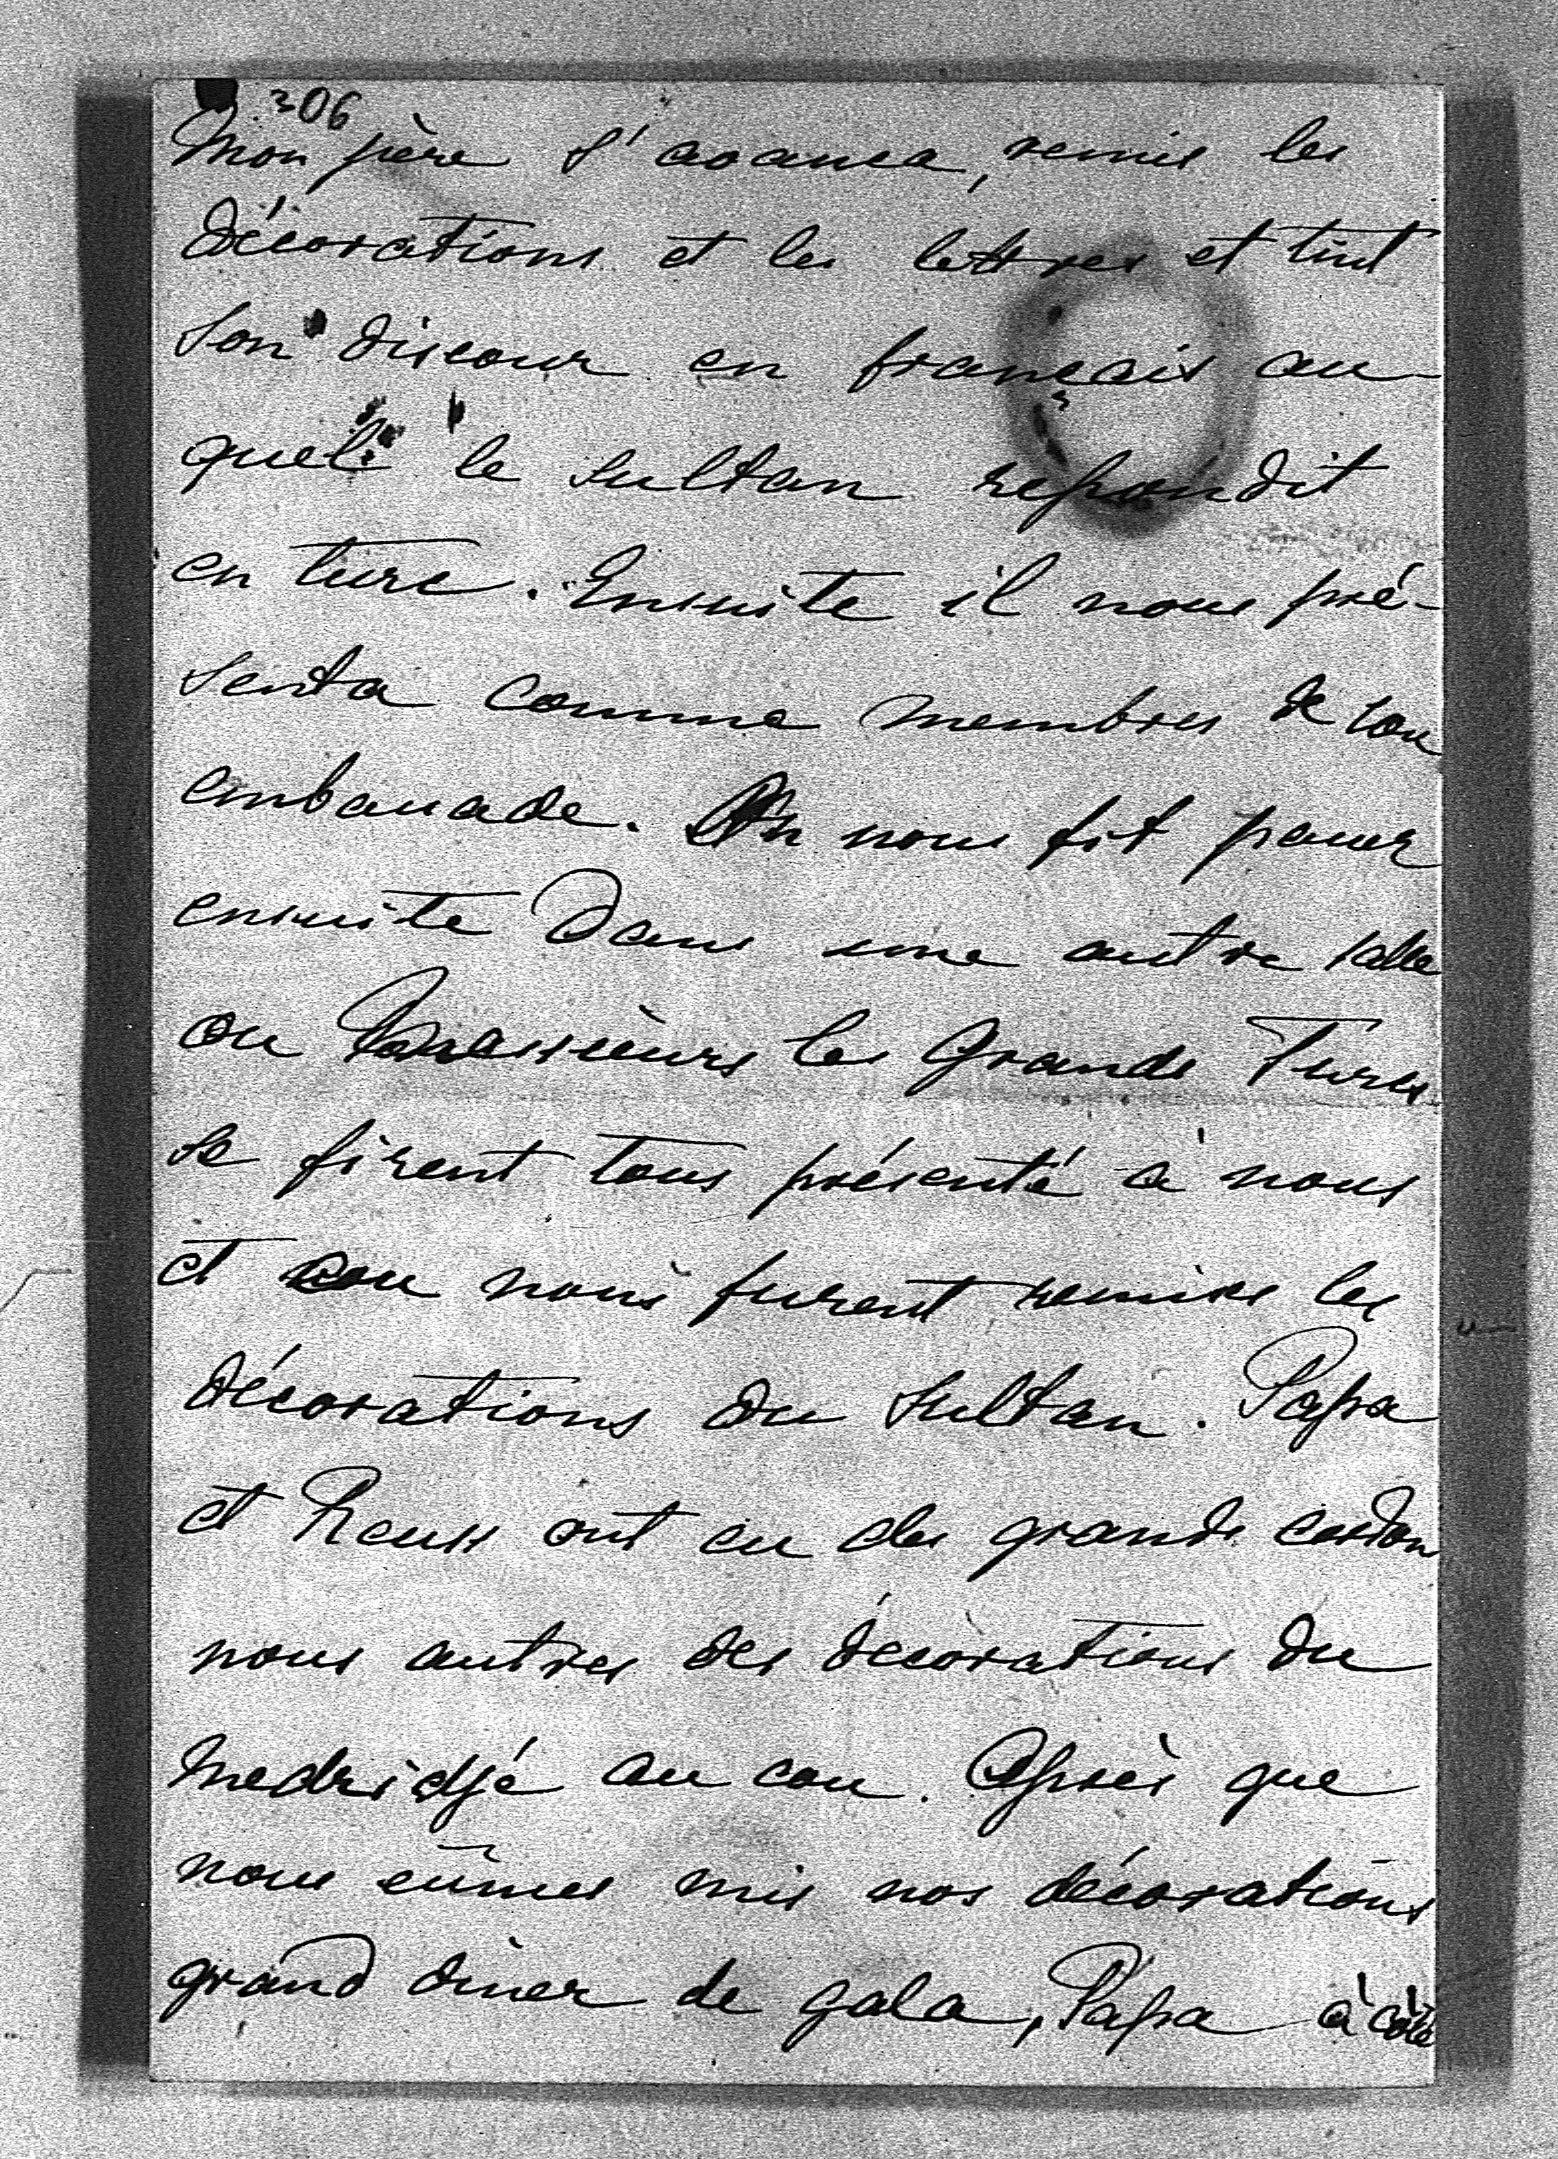 306
Mon père s'avança, remis les
décorations et les lettres et tint
son discour en français au-
quel le Sultan repondit
en turc. Ensuite il nous pré-
senta comme membres de son
embassade. On nous fit passer
ensuite dans une autre salle
ou Messieurs les Grands Turcs
se firent tous présenté à nous
et ou nous furent remises les
décorations du Sultan. Papa
et Reuss ont eu des grands cordons
nous autres des décorations du
Medridjé au cou. Après que
nous eûmes mis nos décorations
grand diner de gala, Papa à côté